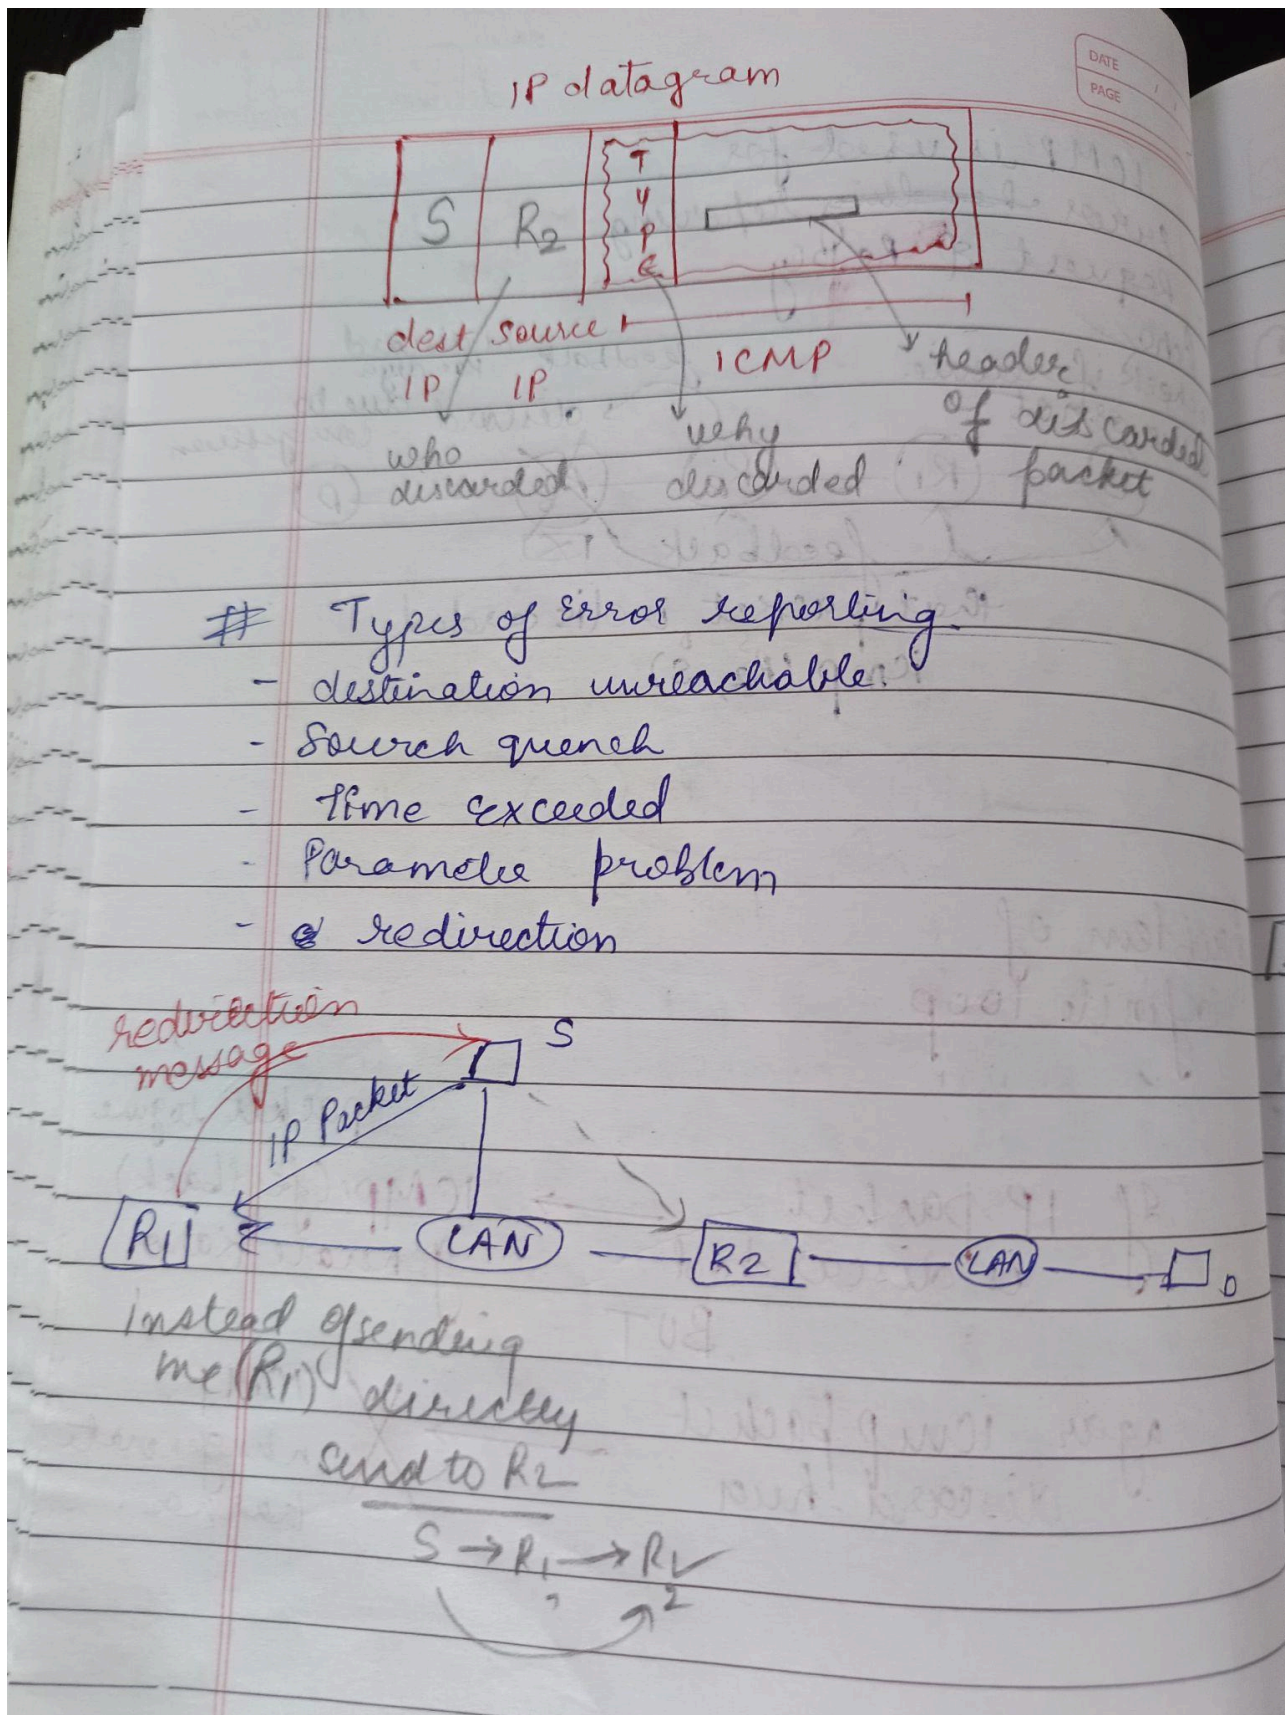 DATE
PAGE
IP datagram
S R2 TYPE
dest source
IP IP ICMP
header
of discarded
packet
who
discarded
why
discarded
# Types of Error reporting.
- destination unreachable.
- Sourch quench
- Time exceeded
- Parameter problem
- redirection
redirection
message
S
IP Packet
R1 LAN R2 LAN D
instead of sending
me (R1) directly
send to R2
S → R1 → R2
2